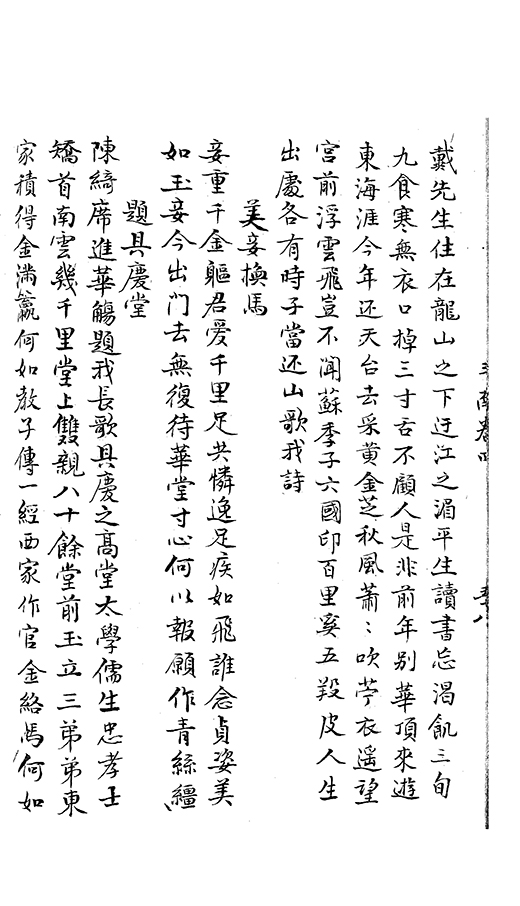 戴先生住在龍山之下迂江之湄平生讀書忘渴飢三旬
九食寒無衣口掉三寸舌不顧人是非前年別華頂來遊
東海涯今年还天台去采黄金芝秋風蕭〻吹苧衣遥望
宫前浮雲飛豈不聞蘇季子六國印百里奚五羖皮人生
出處各有時子當还山歌我詩
美妾換馬
妾重千金軀君愛千里足共憐逸足疾如飛誰念貞姿美
如玉妾今出門去無復待華堂寸心何以報願作青絲繮
題具慶堂
陳綺席進華觴題我長歌具慶之高堂太學儒生忠孝士
矯首南雲幾千里堂上雙親八十餘堂前玉立三弟弟東
家積得金滿籯何如教子傳一經西家作官金絡馬何如